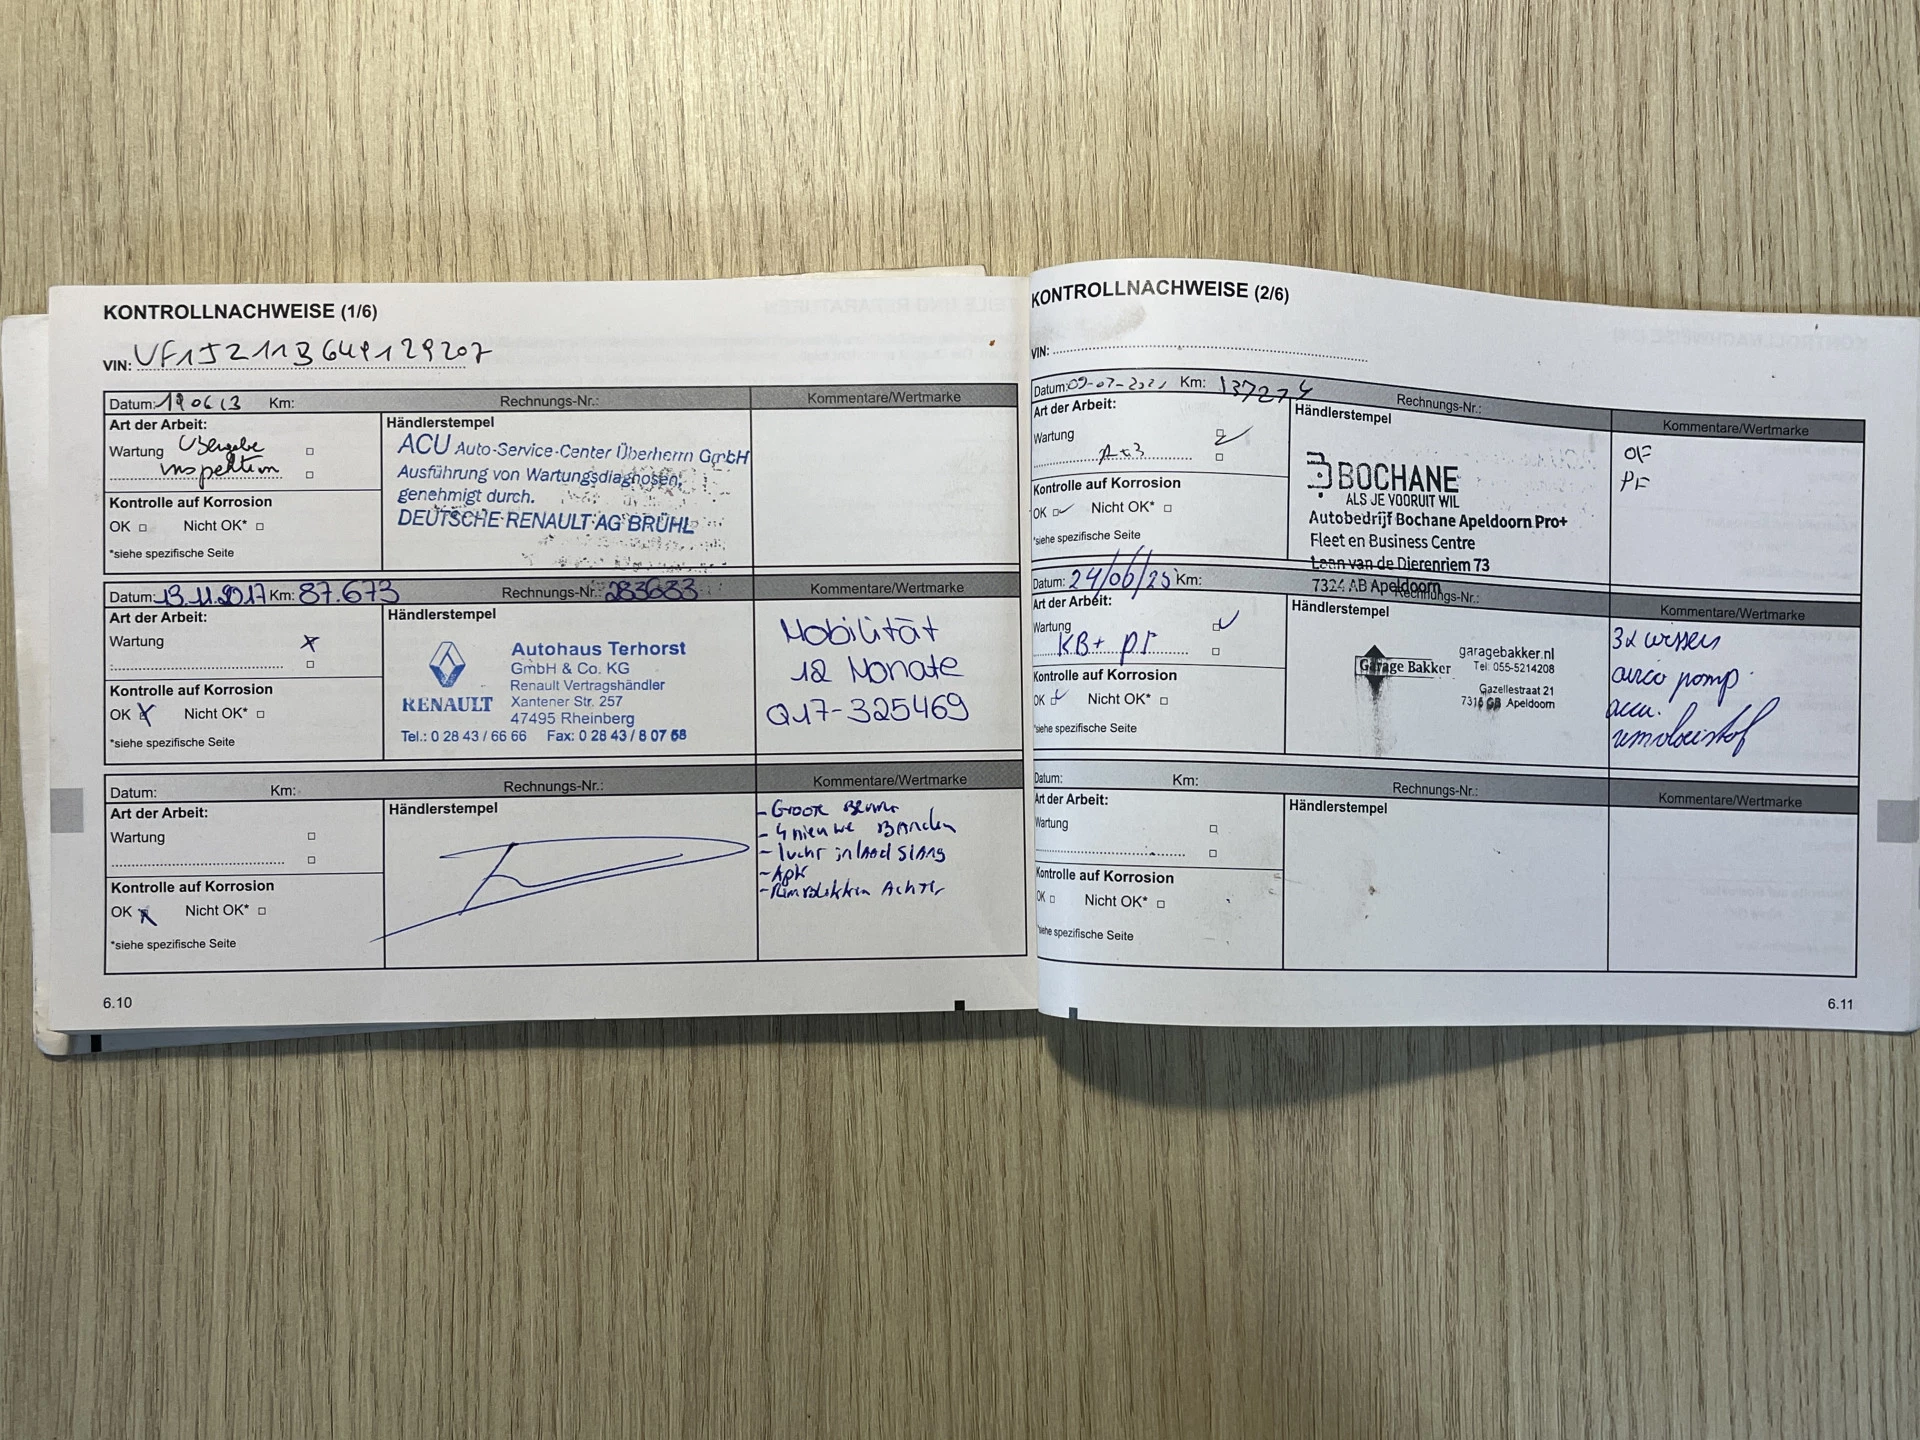 KONTROLLNACHWEISE (1/6)
VIN: VF1JZ11B649129207
Datum: 19 06 13 Km: Rechnungs-Nr.: Kommentare/Wertmarke
Art der Arbeit:
Wartung Übergabe
inspektion
Kontrolle auf Korrosion
OK Nicht OK*
*siehe spezifische Seite
Händlerstempel
ACU Auto-Service-Center Überherrn GmbH
Ausführung von Wartungsdiagnosen,
genehmigt durch.
DEUTSCHE RENAULT AG BRÜHL
Datum: 13.11.2017 Km: 87.673 Rechnungs-Nr.: 283683 Kommentare/Wertmarke
Art der Arbeit:
Wartung x
Kontrolle auf Korrosion
OK x Nicht OK*
*siehe spezifische Seite
Händlerstempel
RENAULT
Autohaus Terhorst
GmbH & Co. KG
Renault Vertragshändler
Xantener Str. 257
47495 Rheinberg
Tel.: 0 28 43 / 66 66 Fax: 0 28 43 / 8 07 58
Mobilität
12 Monate
Q17-325469
Datum: Km: Rechnungs-Nr.: Kommentare/Wertmarke
Art der Arbeit:
Wartung
Kontrolle auf Korrosion
OK x Nicht OK*
*siehe spezifische Seite
Händlerstempel
- Groote
- 4 nieuwe Banden
- lucht inlaad slang
- Apk
- Remblokken Achter
6.10
KONTROLLNACHWEISE (2/6)
VIN:
Datum: 09-07-2021 Km: 137274 Rechnungs-Nr.: Kommentare/Wertmarke
Art der Arbeit:
Wartung
Kontrolle auf Korrosion
OK Nicht OK*
*siehe spezifische Seite
Händlerstempel
BOCHANE
ALS JE VOORUIT WIL
Autobedrijf Bochane Apeldoorn Pro+
Fleet en Business Centre
Laan van de Dierenriem 73
7324 AB Apeldoorn
OF
PF
Datum: 24/06/25 Km: Rechnungs-Nr.: Kommentare/Wertmarke
Art der Arbeit:
Wartung
KB+ PF
Kontrolle auf Korrosion
OK Nicht OK*
*siehe spezifische Seite
Händlerstempel
Garage Bakker
garagebakker.nl
Tel: 055-5214208
Gazellestraat 21
7316 GB Apeldoorn
3x wissers
airco pomp.
accu.
remvloeistof
Datum: Km: Rechnungs-Nr.: Kommentare/Wertmarke
Art der Arbeit:
Wartung
Kontrolle auf Korrosion
OK Nicht OK*
*siehe spezifische Seite
Händlerstempel
6.11